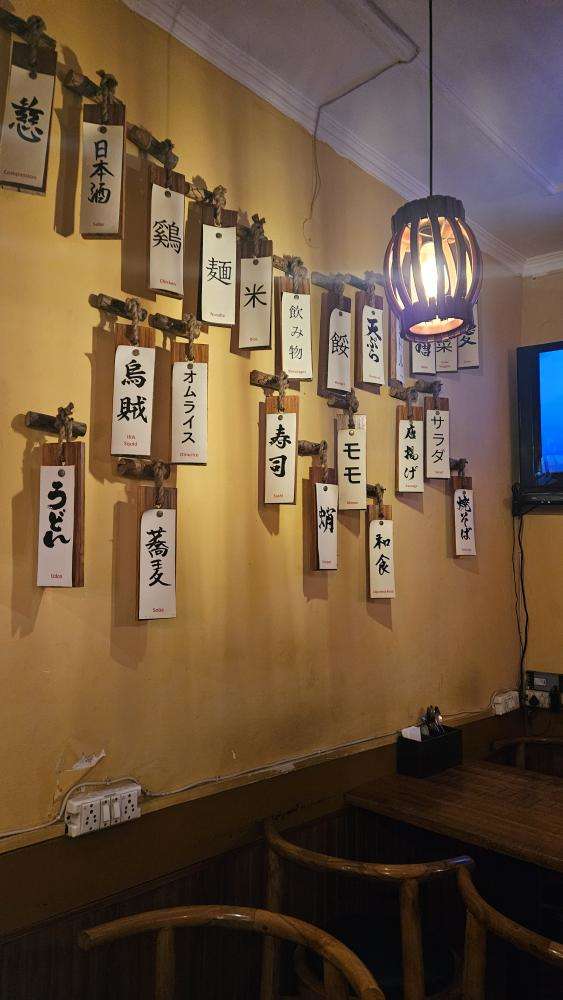 慈
Compassion
日本酒
Sake
鶏
Chicken
麺
Noodle
米
Rice
飲み物
Beverages
餃
天ぷら
菜
愛
烏賊
Ika
Squid
オムライス
Omurice
寿司
Sushi
モモ
Momo
唐揚げ
サラダ
うどん
Udon
蕎麦
Soba
蛸
和食
Japanese Food
焼そば